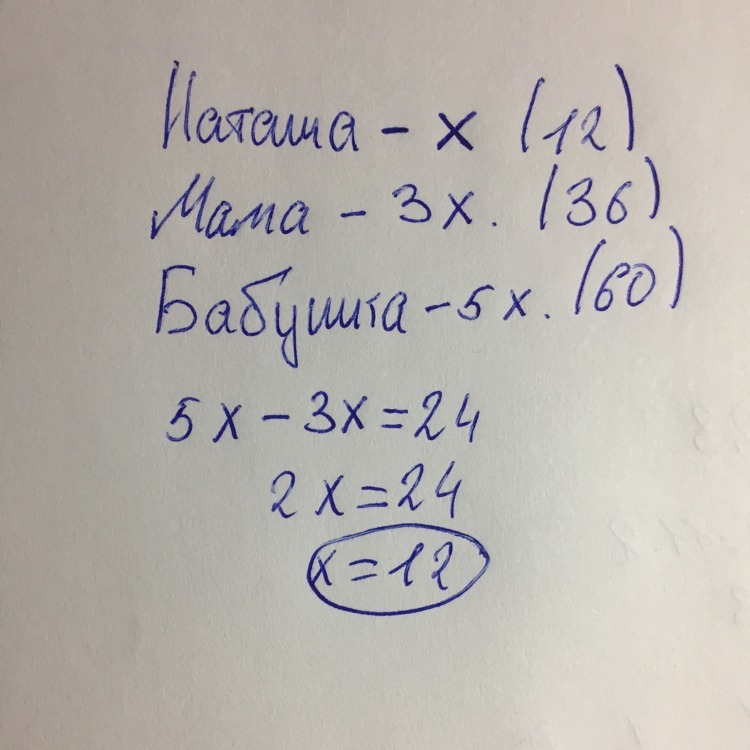 Наташа - x (12)
Мама - 3x. (36)
Бабушка - 5x. (60)
5x - 3x = 24
2x = 24
x = 12